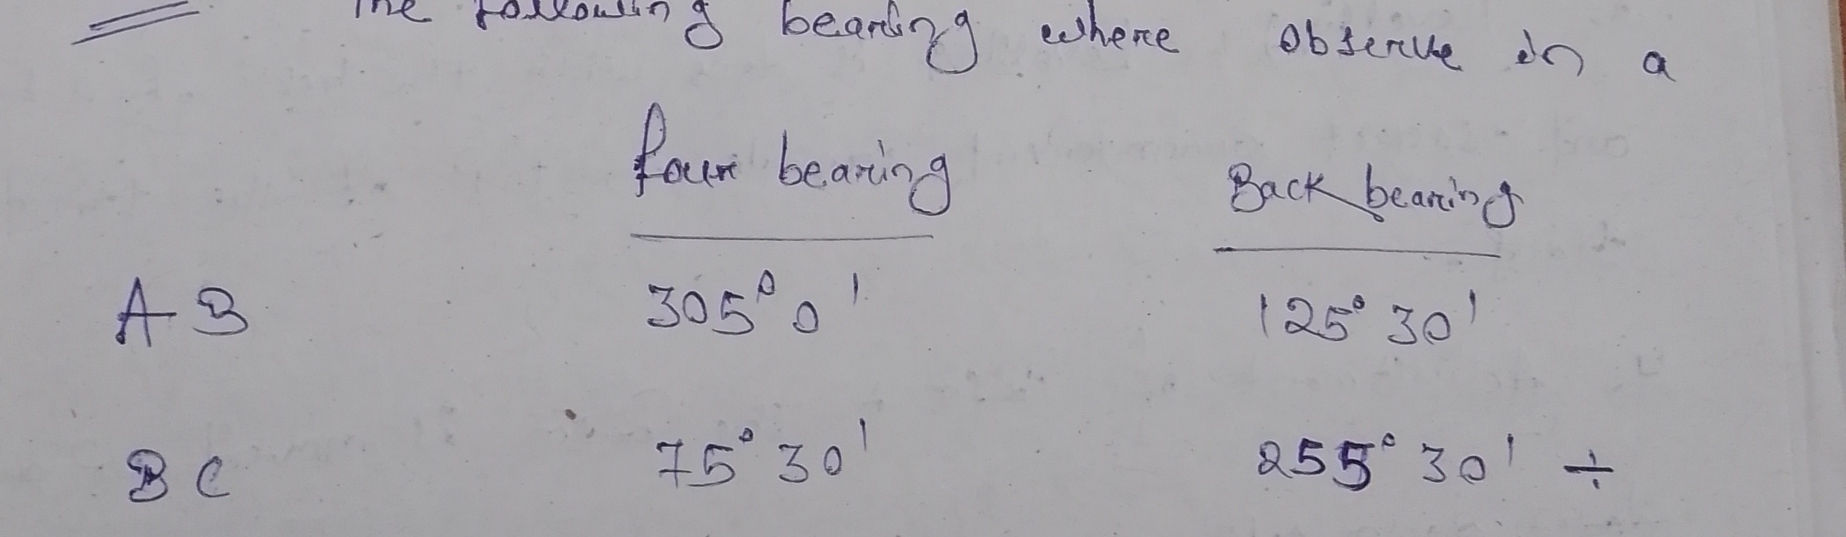 The following bearing where observe in a
four bearing Back bearing
AB 305° 0' 125° 30'
BC 75° 30' 255° 30' ÷